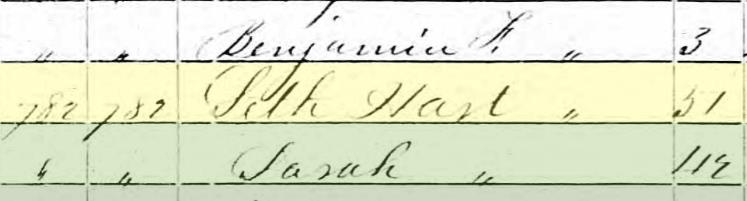 " " Benjamin F. " 3
782 782 Seth Hart " 51
" " Sarah " 42